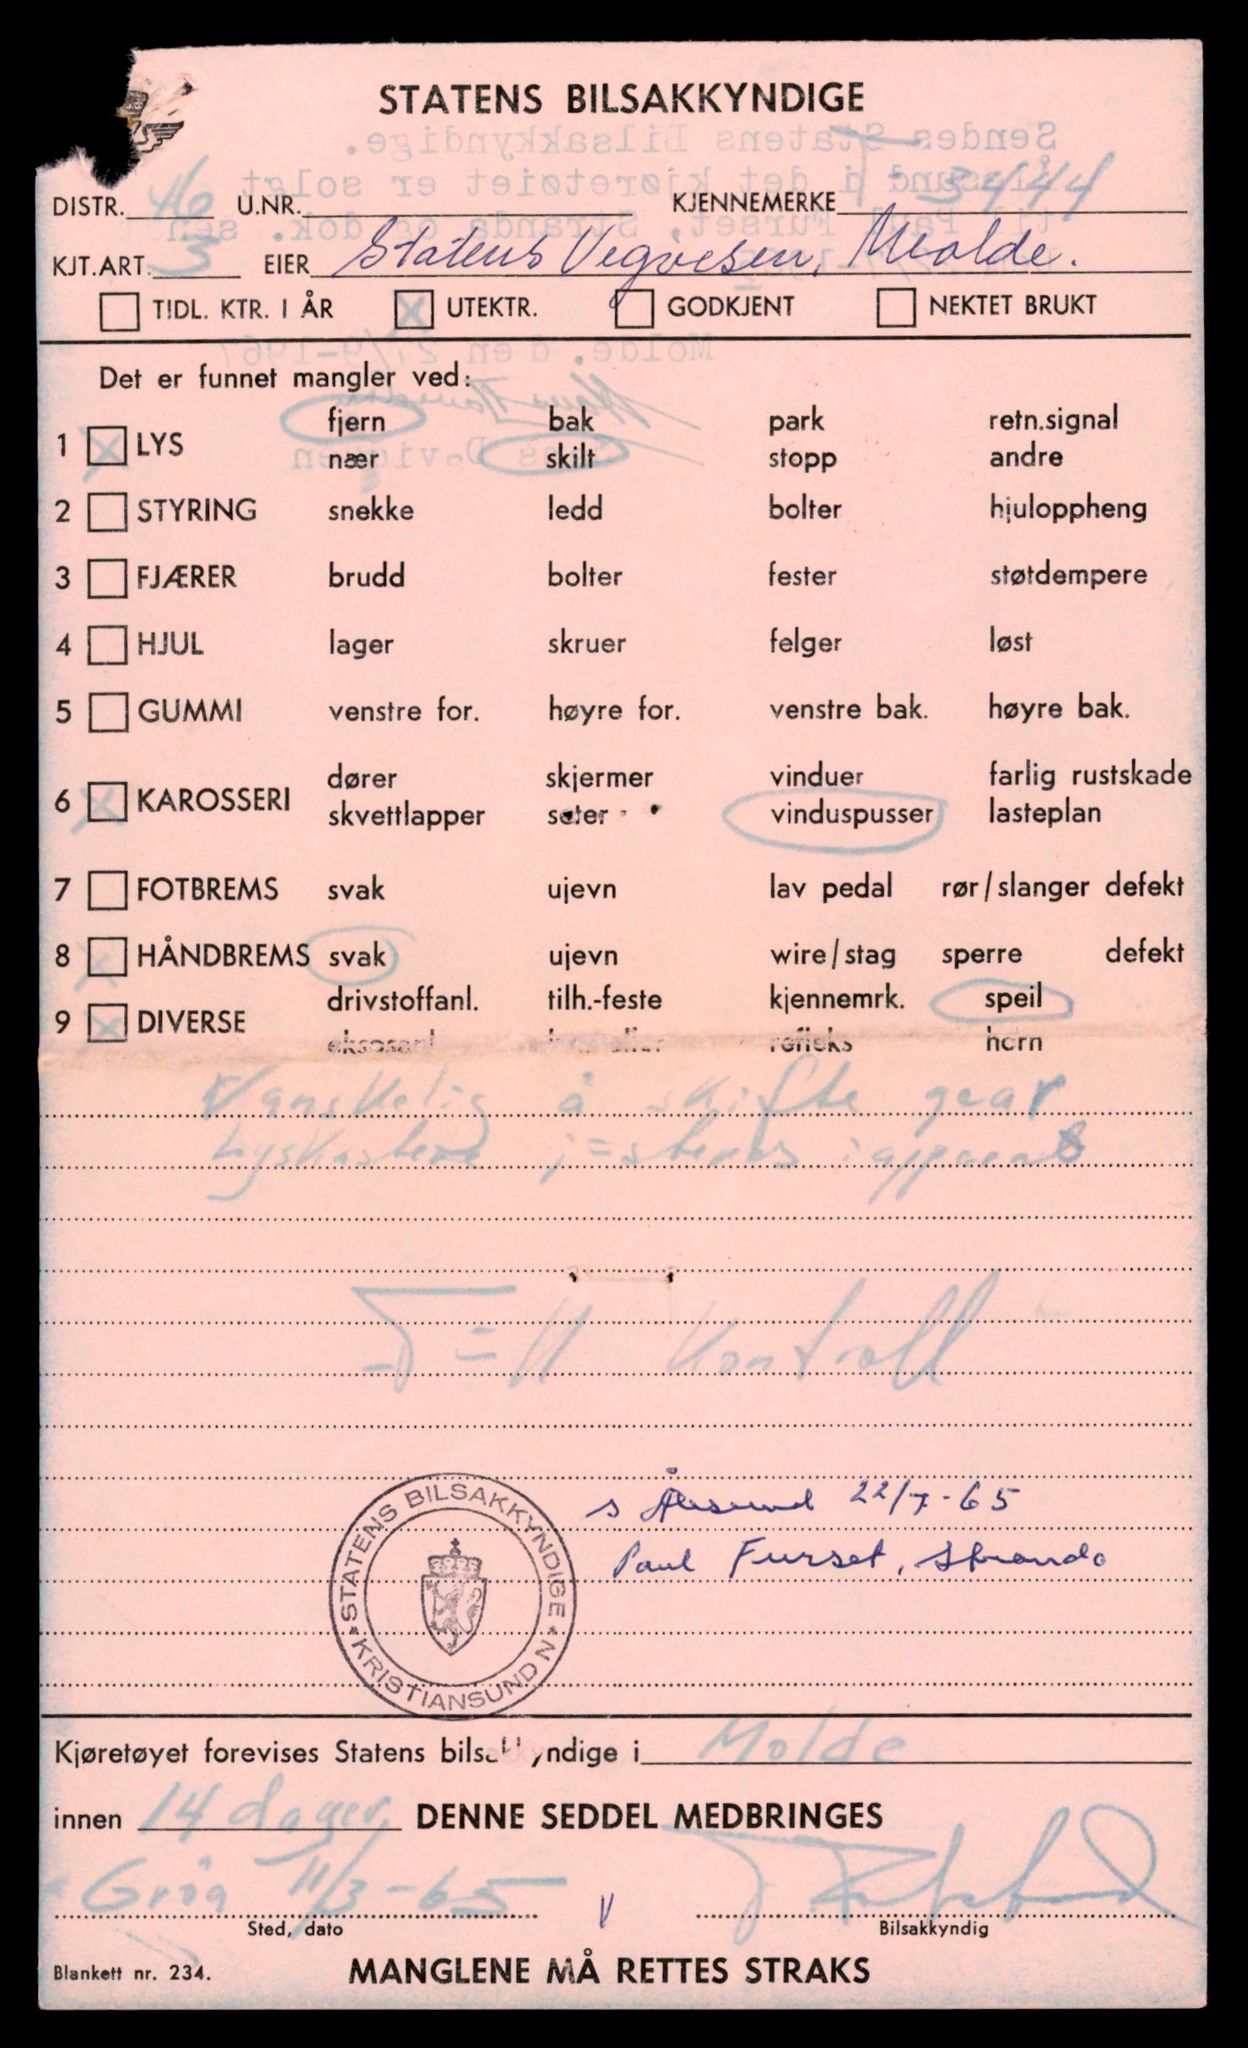 STATENS BILSAKKYNDIGE
DISTR. 46 U.NR. KJENNEMERKE T 3444
KJT.ART. 3 EIER Statens Vegvesen, Molde.
TIDL. KTR. I ÅR UTEKTR. GODKJENT NEKTET BRUKT
Sendes Statens Bilsakkyndige.
Ålesund i det kjøretøiet er solgt
til Paul Furset, Stranda og dok. sendt
Molde, den 2/9-1967
Det er funnet mangler ved:
fjern bak park retn.signal
1 LYS
nær skilt stopp andre
2 STYRING snekke ledd bolter hjuloppheng
3 FJÆRER brudd bolter fester støtdempere
4 HJUL lager skruer felger løst
5 GUMMI venstre for. høyre for. venstre bak. høyre bak.
dører skjermer vinduer farlig rustskade
6 KAROSSERI
skvettlapper seter vinduspusser lasteplan
7 FOTBREMS svak ujevn lav pedal rør/slanger defekt
8 HÅNDBREMS svak ujevn wire/stag sperre defekt
drivstoffanl. tilh.-feste kjennemrk. speil
9 DIVERSE
eksosanl refleks horn
Vanskelig å skifte gear
Lyskastere j=steres i apparat
Kontroll
s Ålesund 22/7-65
Paul Furset, Stranda
STATENS BILSAKKYNDIGE * KRISTIANSUND N *
Kjøretøyet forevises Statens bilsakkyndige i Molde
innen 14 dager DENNE SEDDEL MEDBRINGES
Grøa 11/3-65
Sted, dato Bilsakkyndig
Blankett nr. 234. MANGLENE MÅ RETTES STRAKS